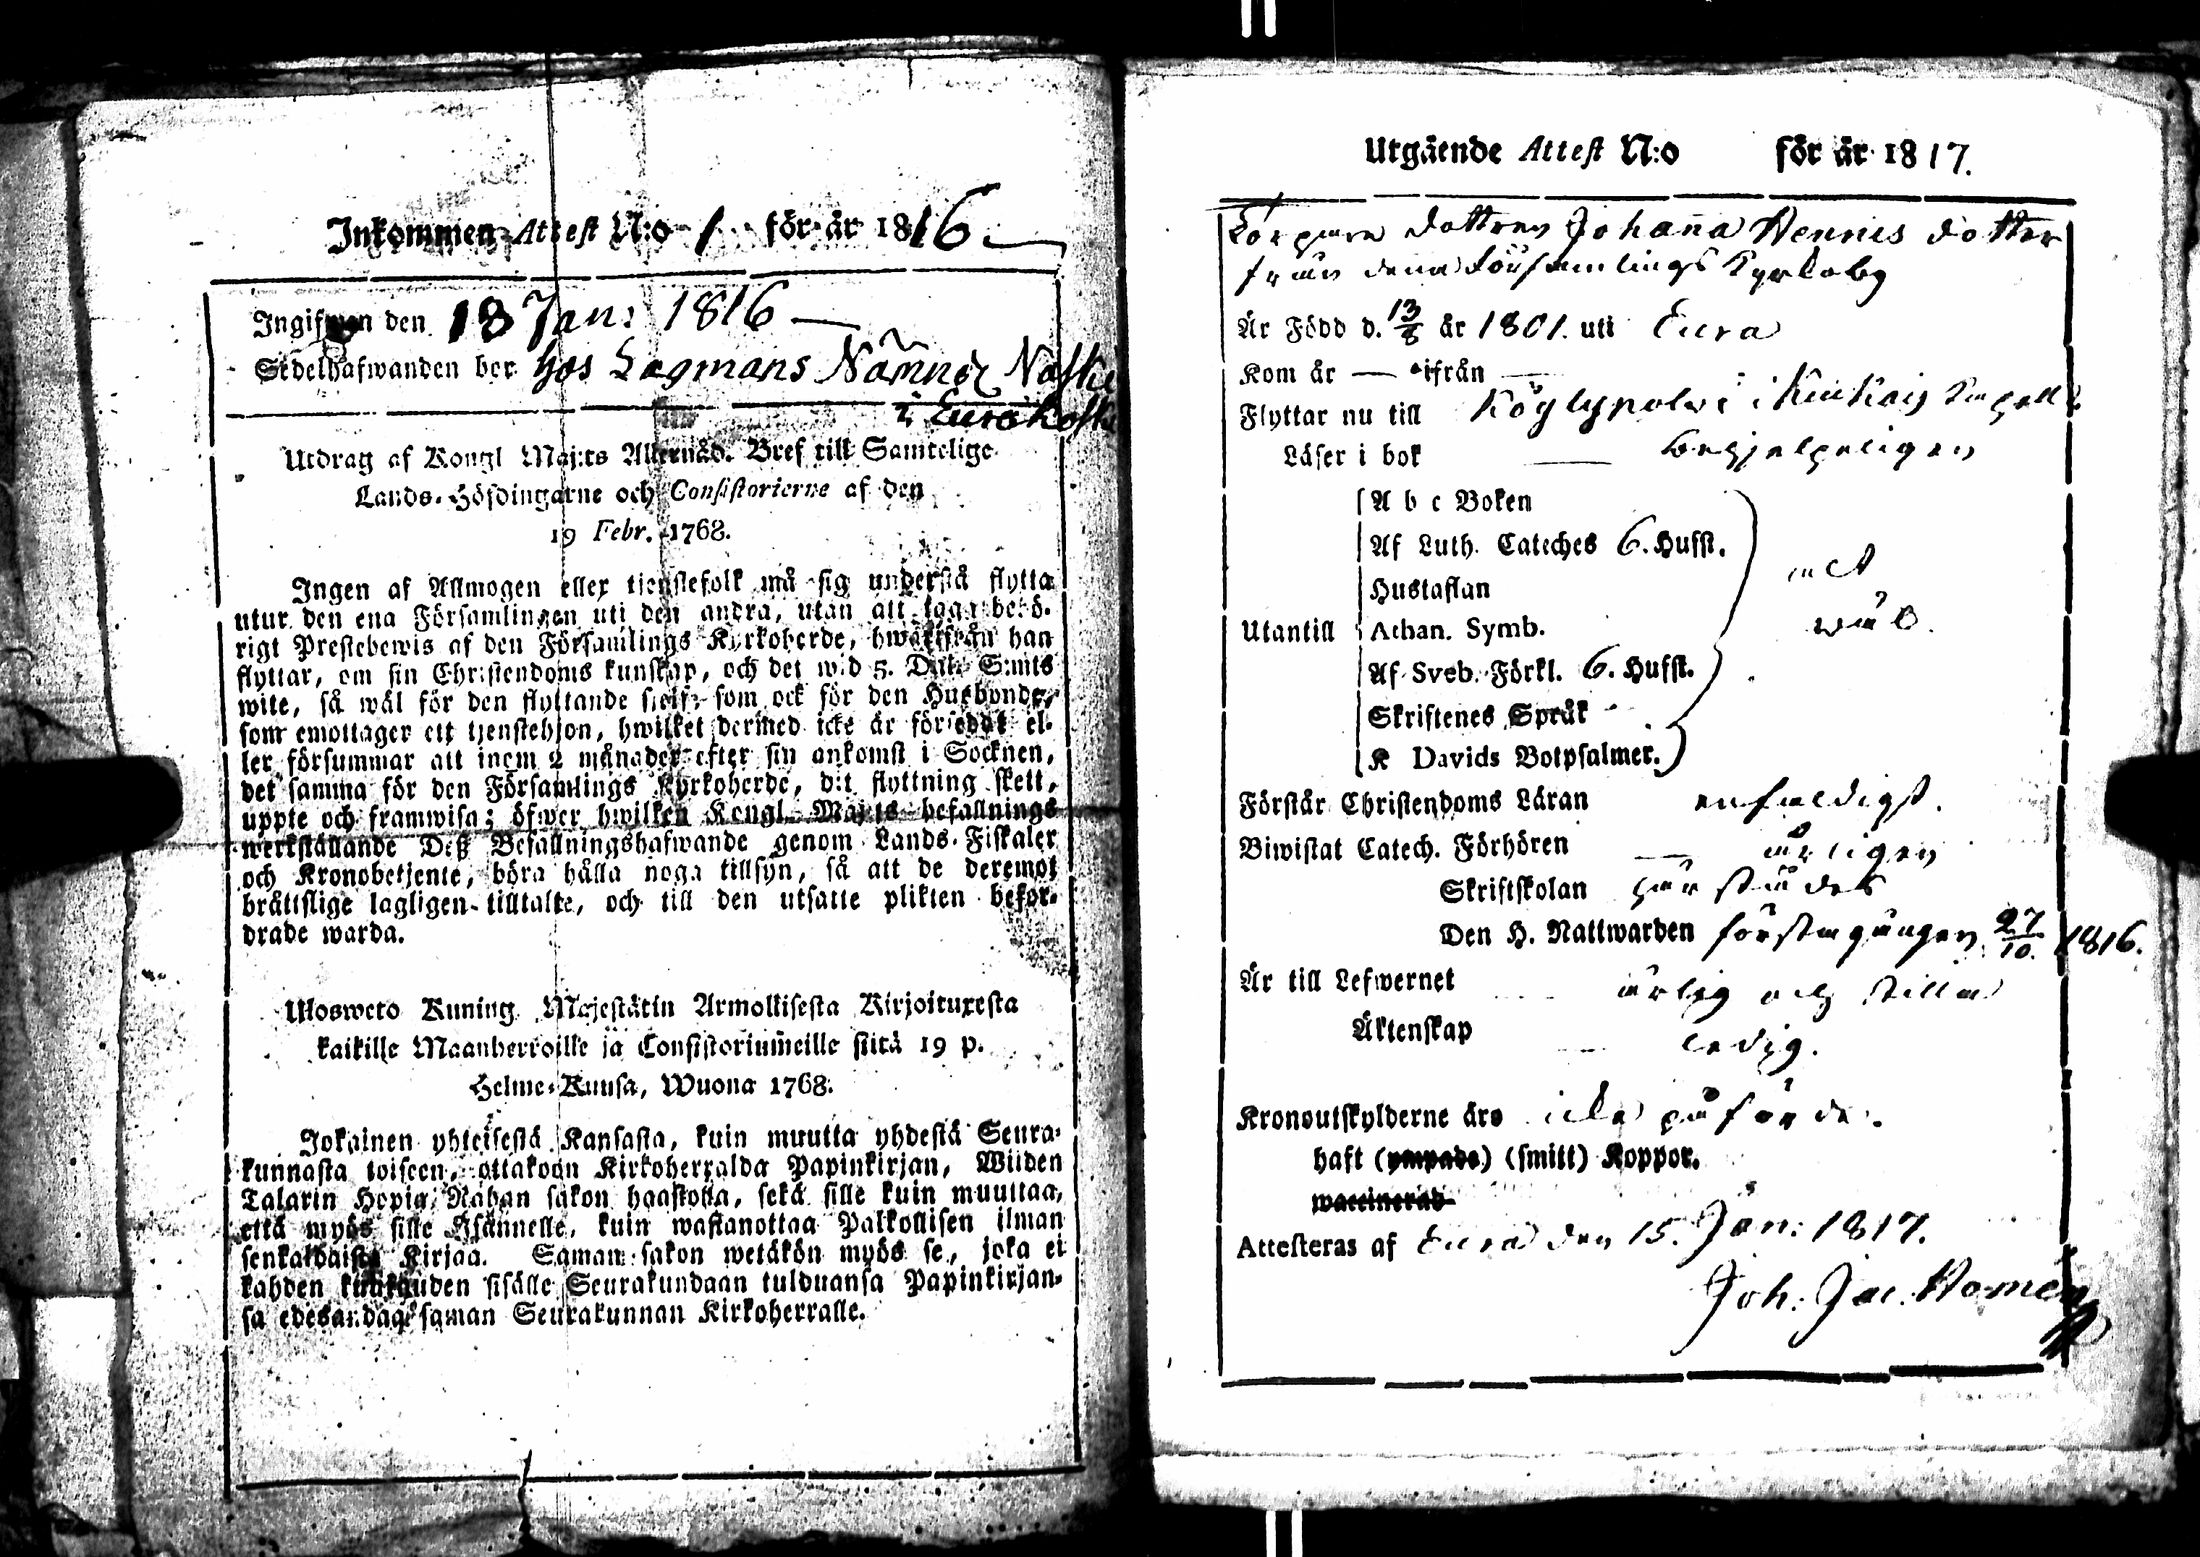 Inkommen Attest N:o 1 för år 1816.
Ingifwen den 18 Jan: 1816
Sedelhafwanden ber hos Lagmans Nämnd
i Eura
Utdrag af Kongl Maj:ts Allernåd. Bref till Samtelige
Lands-Höfdingarne och Consistorierne af den
19 Febr. 1768.
Ingen af Allmogen eller tjenstefolk må sig understå flytta
utur den ena Församlingen uti den andra, utan att taga behö-
rigt Prestebewis af den Församlings Kyrkoherde, hwarifrån han
flyttar, om sin Christendoms kunskap, och det wid 5. Dal. S:mts
wite, så wäl för den flyttande sielf, som ock för den Husbonde,
som emottager ett tjenstehjon, hwilket dermed icke är försedt el-
ler försummar att inom 2 månader efter sin ankomst i Socknen,
det samma för den Församlings Kyrkoherde, dit flyttning skett,
uppte och framwisa; öfwer hwilken Kongl. Maj:ts befallnings
werkställande Deß Befallningshafwande genom Lands-Fiskaler
och Kronobetjente, böra hålla noga tillsyn, så att de deremot
bråttslige lagligen tilltalte, och till den utsatte plikten befor-
drade warda.
Ulosweto Kuning. Majestätin Armollisesta Kirjoituxesta
kaikille Maanherroille ja Consistoriumeille siitä 19 p.
Helme-Kuusa, Wuona 1768.
Jokainen yhteisestä Kansasta, kuin muutta yhdestä Seura-
kunnasta toiseen, ottakoon Kirkoherralda Papinkirjan, Wiiden
Talarin Hopia Rahan sakon haastolla, sekä sille kuin muuttaa,
että myös sille Isännelle, kuin wastanottaa Palkollisen ilman
senkaldaista Kirjaa. Saman sakon wetäkön myös se, joka ei
kahden kuukauden sisälle Seurakundaan tulduansa Papinkirjan-
sa edesanda saman Seurakunnan Kirkoherralle.
Utgående Attest N:o för år 1817.
dottren Johanna Hennes dotter
från denna Församlings Kyrkoby
Är Född d. 13/8 år 1801. uti Eura
Kom år — ifrån —
Flyttar nu till Köylypolwi i Kiukais Capell
Läser i bok — behjelpeligen
A b c Boken
Af Luth. Cateches 6. Hufst.
Hustaflan
Utantill Athan. Symb.
Af Sveb. Förkl. 6. Hufst.
Skriftenes Språk
K Davids Botpsalmer.
wäl.
Förstår Christendoms Läran enfaldigt.
Biwistat Catech. Förhören — årligen
Skriftskolan påstådes
Den H. Nattwarden första gången 27/10. 1816.
Är till Lefwernet ärlig och stilla
Äktenskap ledig.
Kronoutskylderne äro icke påförde.
haft (ympade) (smitt) Koppor.
waccinerad
Attesteras af Eura den 15. Jan: 1817.
Joh: Jac. Homén